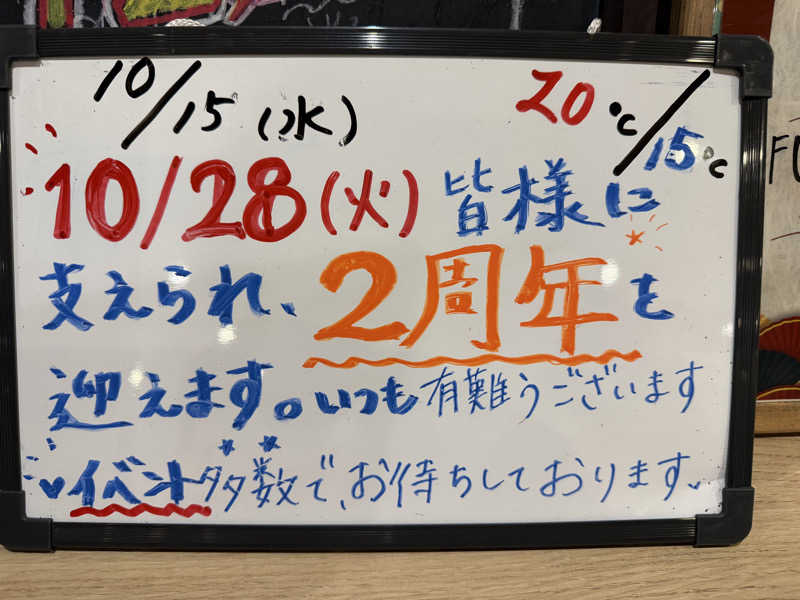 10/15(水) 20℃/15℃
10/28(火) 皆様に
支えられ、2周年を
迎えます。いつも有難うございます
♥イベント多数で、お待ちしております。